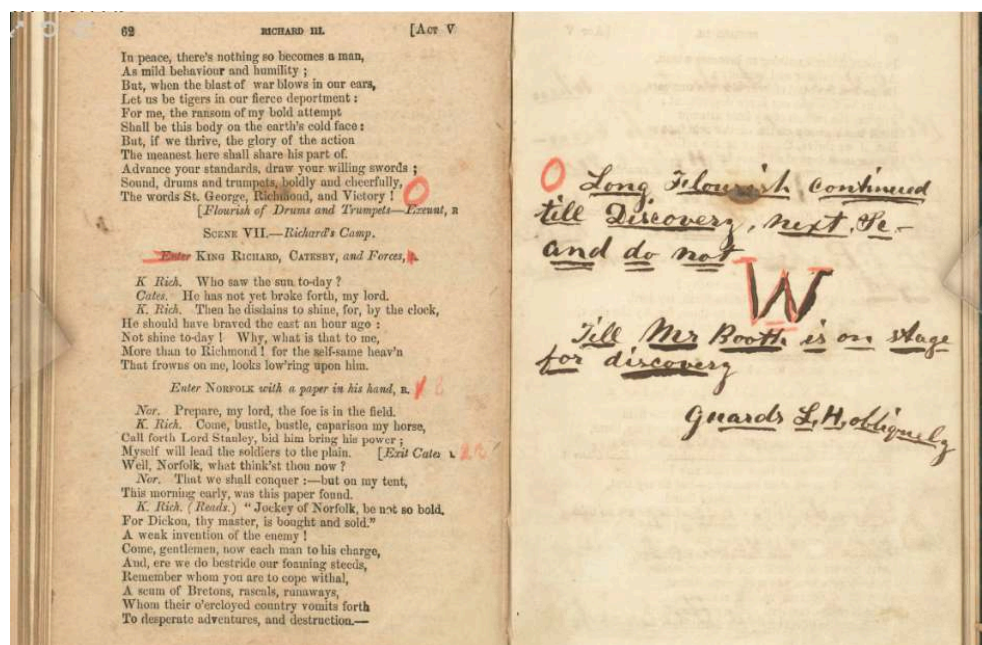 62 RICHARD III. [ACT V
In peace, there's nothing so becomes a man,
As mild behaviour and humility ;
But, when the blast of war blows in our ears,
Let us be tigers in our fierce deportment :
For me, the ransom of my bold attempt
Shall be this body on the earth's cold face :
But, if we thrive, the glory of the action
The meanest here shall share his part of.
Advance your standards, draw your willing swords ;
Sound, drums and trumpets, boldly and cheerfully,
The words St. George, Richmond, and Victory ! O
[Flourish of Drums and Trumpets—Exeunt, R
SCENE VII.—Richard's Camp.
Enter KING RICHARD, CATESBY, and Forces,
K Rich. Who saw the sun to-day ?
Cates. He has not yet broke forth, my lord.
K. Rich. Then he disdains to shine, for, by the clock,
He should have braved the east an hour ago :
Not shine to-day ! Why, what is that to me,
More than to Richmond ! for the self-same heav'n
That frowns on me, looks low'ring upon him.
Enter NORFOLK with a paper in his hand, R.
Nor. Prepare, my lord, the foe is in the field.
K. Rich. Come, bustle, bustle, caparison my horse,
Call forth Lord Stanley, bid him bring his power ;
Myself will lead the soldiers to the plain. [Exit Cates
Well, Norfolk, what think'st thou now ?
Nor. That we shall conquer :—but on my tent,
This morning early, was this paper found.
K. Rich. (Reads.) "Jockey of Norfolk, be not so bold,
For Dickon, thy master, is bought and sold."
A weak invention of the enemy !
Come, gentlemen, now each man to his charge,
And, ere we do bestride our foaming steeds,
Remember whom you are to cope withal,
A scum of Bretons, rascals, runaways,
Whom their o'ercloyed country vomits forth
To desperate adventures, and destruction.—
O Long Flourish continued
till Discovery, next Sc-
and do not
W
Till Mr Booth is on stage
for discovery
Guards L.H. obliquely